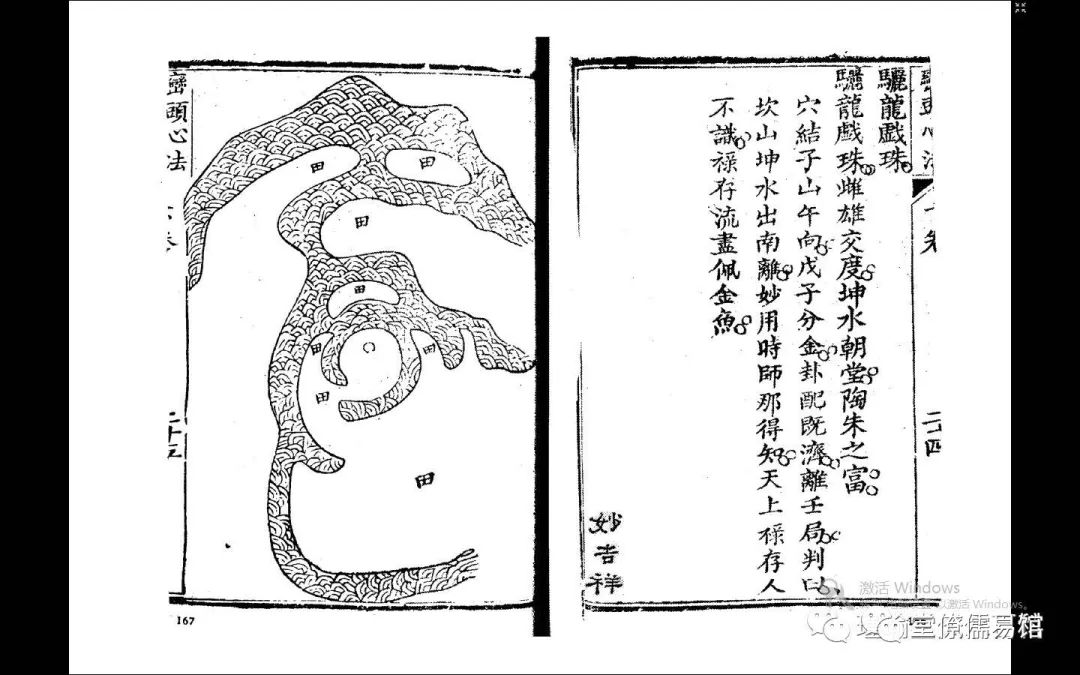 驪龍戲珠
驪龍戲珠雌雄交度坤水朝堂陶朱之富
穴結子山午向戊子分金卦配既濟離壬局判曰
坎山坤水出南離妙用時師那得知天上祿存人
不識祿存流盡佩金魚
妙吉祥
二十四
巒頭心法
二十五
田
田
田
田
田
田
田
田
167
激活 Windows
以激活 Windows。
堂僚儒易馆